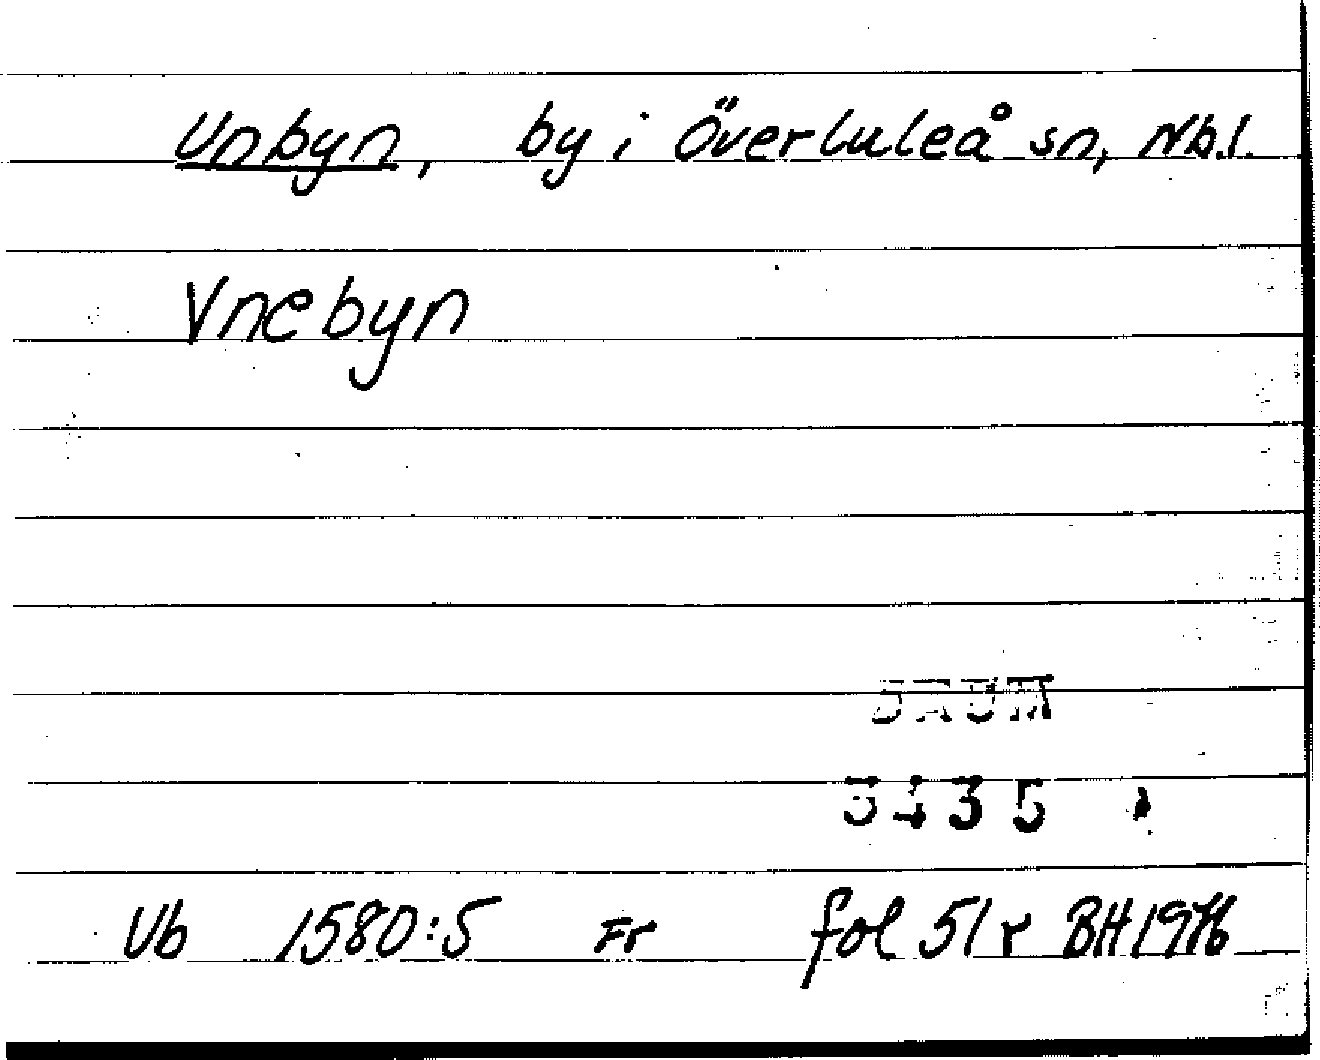 Unbyn, by i Överluleå sn, Nb.l.
Vnebyn
Vb 1580:5 Fr fol 51 r BH 1976